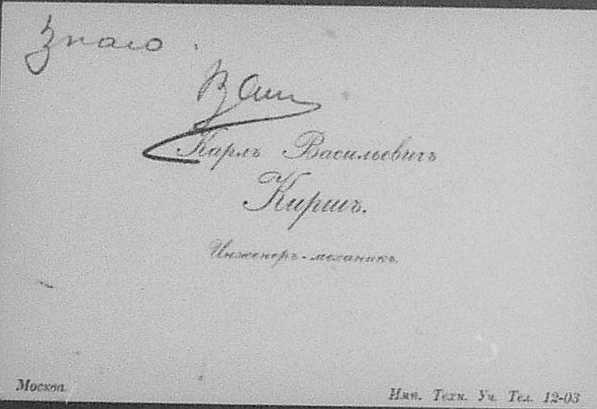 Знаю.
Карлъ Васильевичъ
Киршъ.
Инженеръ-механикъ.
Москва
Имп. Техн. Уч. Тел. 12-03